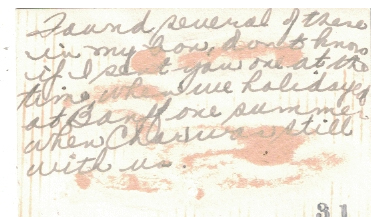 Found several of these
in my box, don't know
if I sent you one at the
time when we holidayed
at Banff one summer
when Chas was still
with us.
31